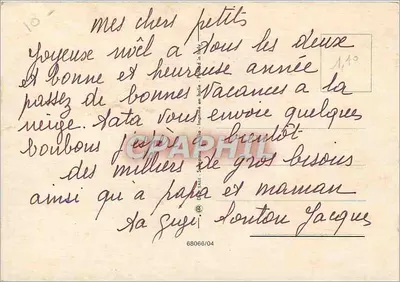 10
mes chers petits
1,10
Joyeuse nöel a tous les deux
et bonne et heureuse année
passez de bonnes vacances a la
neige. Tata vous envoie quelques
bonbons j'espère bientôt
CPAPHIL.com
des milliers de gros bisous
ainsi qu'a papa et maman
Ta Gigi Tonton Jacques
68066/04